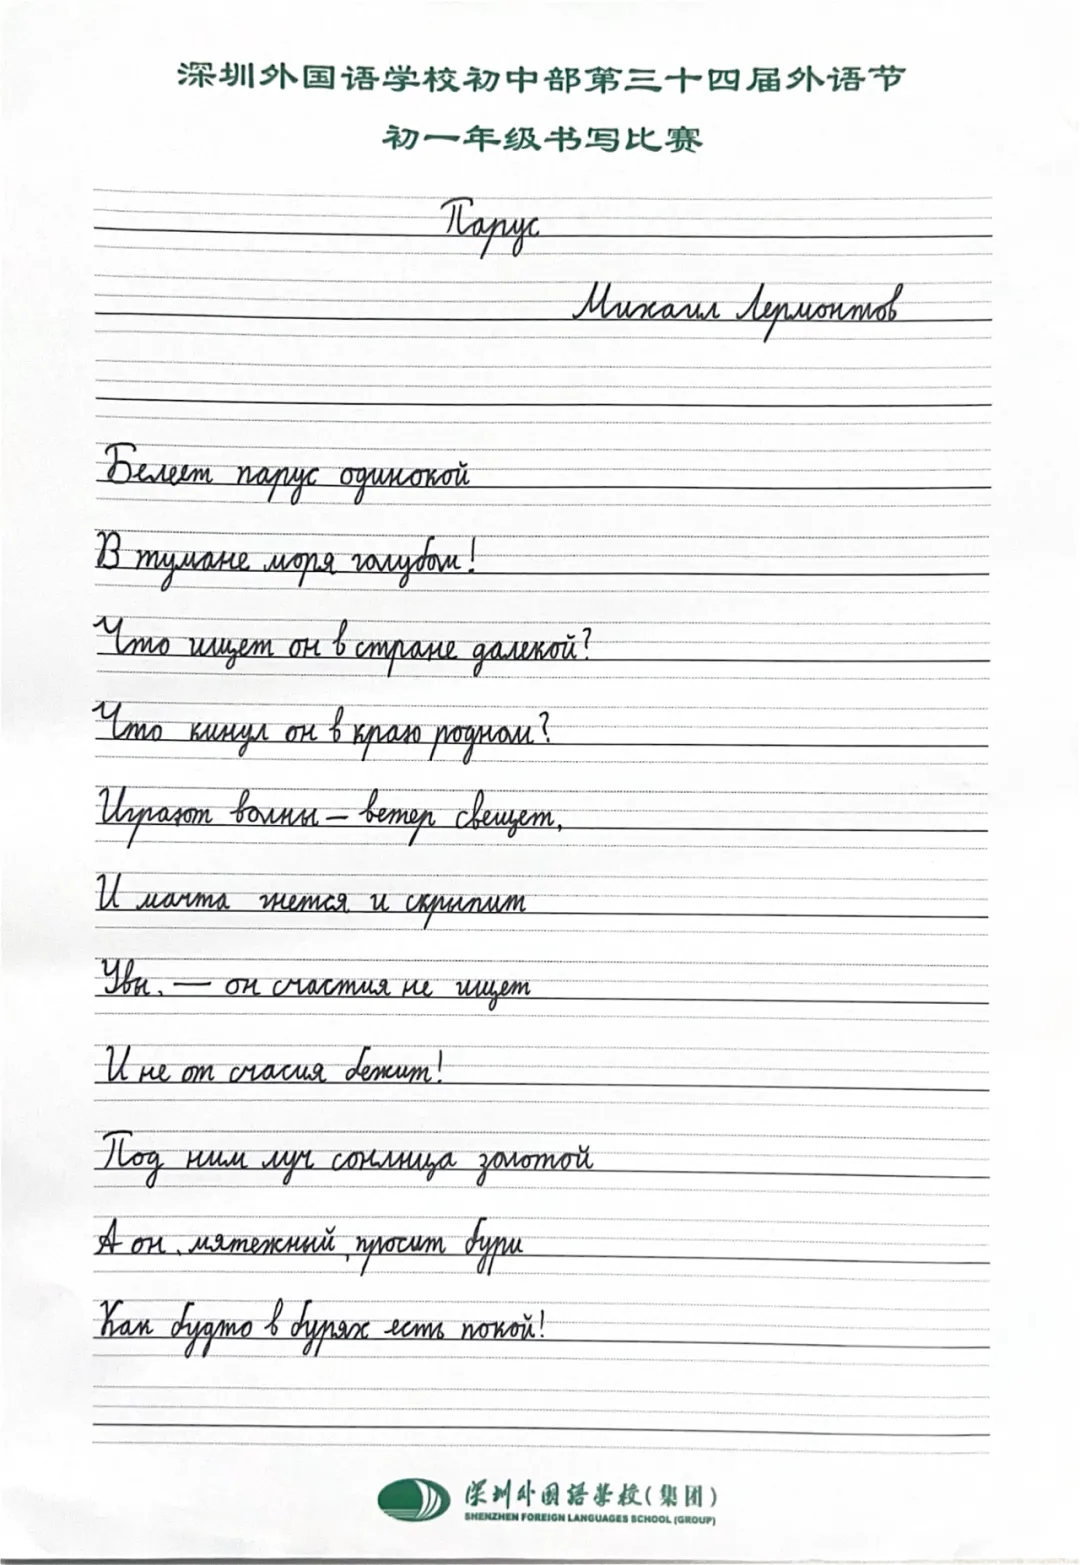 深圳外国语学校初中部第三十四届外语节
初一年级书写比赛
Парус
Михаил Лермонтов
Белеет парус одинокой
В тумане моря голубом!
Что ищет он в стране далекой?
Что кинул он в краю родном?
Играют волны — ветер свещет,
И мачта гнется и скрыпит
Увы, — он счастия не ищет
И не от счасия бежит!
Под ним луч сонлница золотой
А он, мятежный, просит бури
Как будто в бурях есть покой!
深圳外国语学校(集团)
SHENZHEN FOREIGN LANGUAGES SCHOOL (GROUP)